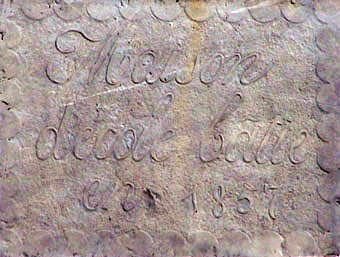 Maison
d'école batie
en 1857